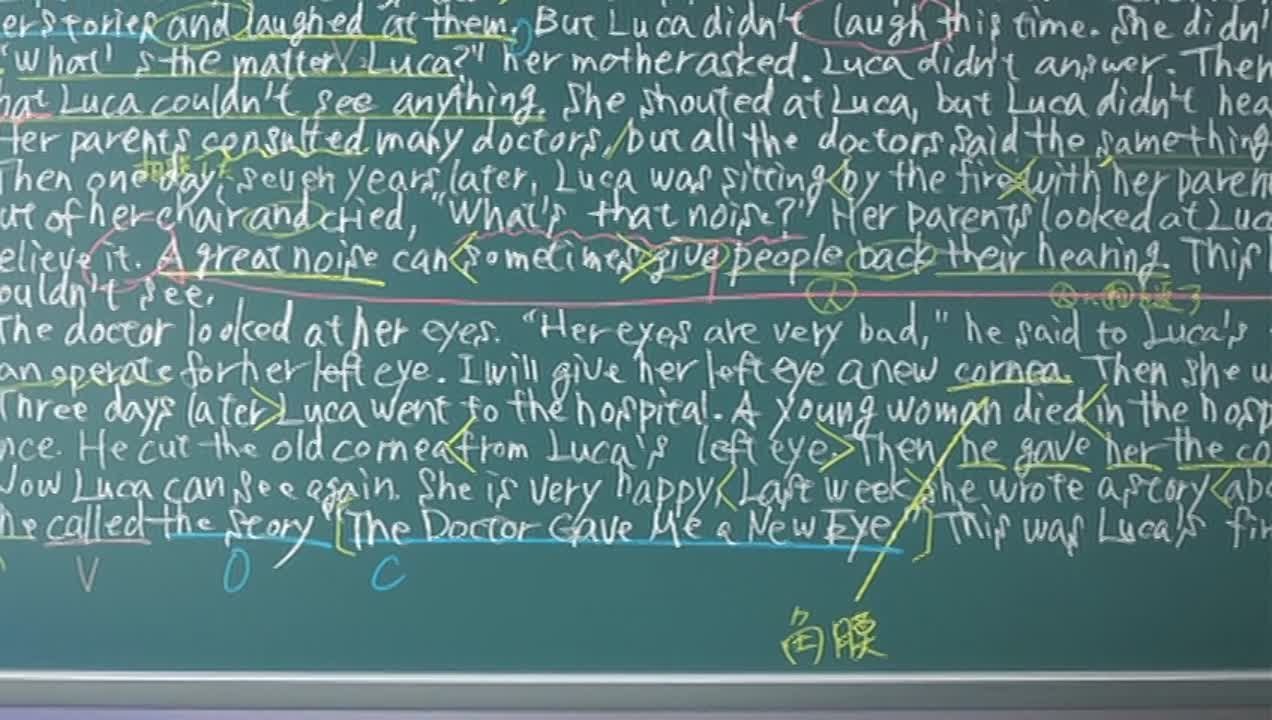 er stories and laughed at them. But Luca didn't laugh this time. She didn'
"What's the matter, Luca?" her mother asked. Luca didn't answer. Then
hat Luca couldn't see anything. She shouted at Luca, but Luca didn't hea
Her parents consulted many doctors, but all the doctors said the same thing
Then one day, seven years later, Luca was sitting by the fire with her paren
ut of her chair and cried, "What's that noise?" Her parents looked at Luc
elieve it. A great noise can sometimes give people back their hearing. This
ouldn't see.
The doctor looked at her eyes. "Her eyes are very bad," he said to Luca's
an operate for her left eye. I will give her left eye a new cornea. Then she w
Three days later Luca went to the hospital. A young woman died in the hosp
nce. He cut the old cornea from Luca's left eye. Then he gave her the co
Now Luca can see again. She is very happy. Last week she wrote a story abo
he called the story "The Doctor Gave Me a New Eye" This was Luca's fir
V O C
角膜